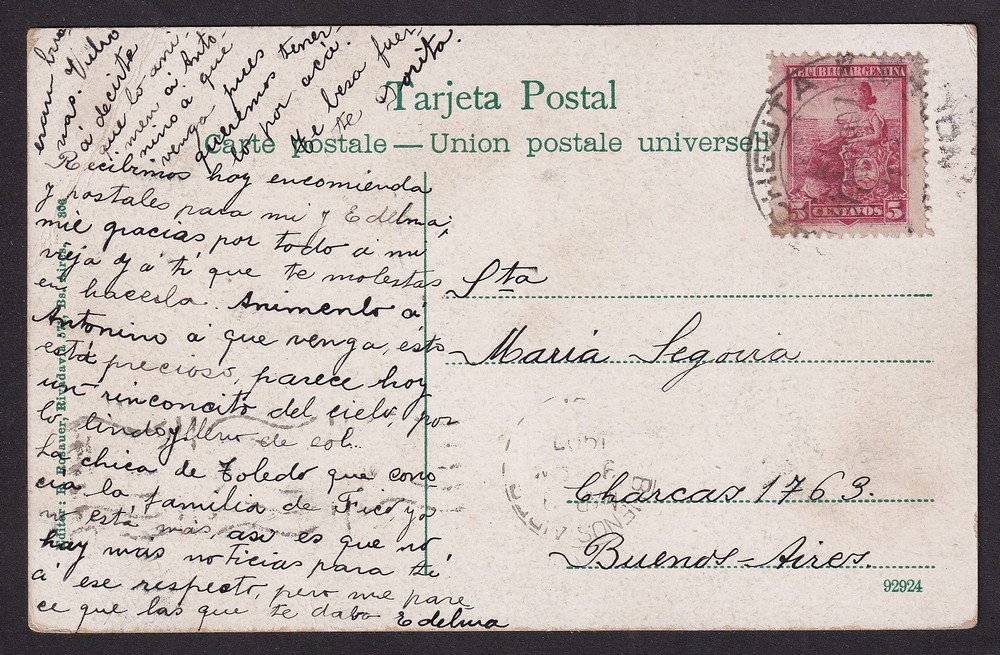 Tarjeta Postal
Carte postale — Union postale universelle
REPUBLICA ARGENTINA
5 CENTAVOS 5
Recibimos hoy encomienda
y postales para mi y Edelma,
mil gracias por todo á mi
vieja y á ti que te molestas
en hacerla. Animenlo á
Antonino á que venga, ésto
está precioso, parece hoy
un rinconcito del cielo, por
lo lindo y lleno de sol.
La chica de Toledo que cono
cia la familia de Fico ya
no está más, asi es que no
hay mas noticias para tí
á ese respecto, pero me pare
ce que las que te daba Edelma
eran bue
nas. Vuelvo
á decirte
que lo ani
men á Anto
nino á que
venga pues
queremos tener
lo por acá.
Te besa fuer
te Dorita.
Sta
María Segovia
Charcas 1763.
Buenos-Aires.
BUENOS AIRES
Editor: R. Rosauer, Rivadavia 571, Bs. Aires,
92924